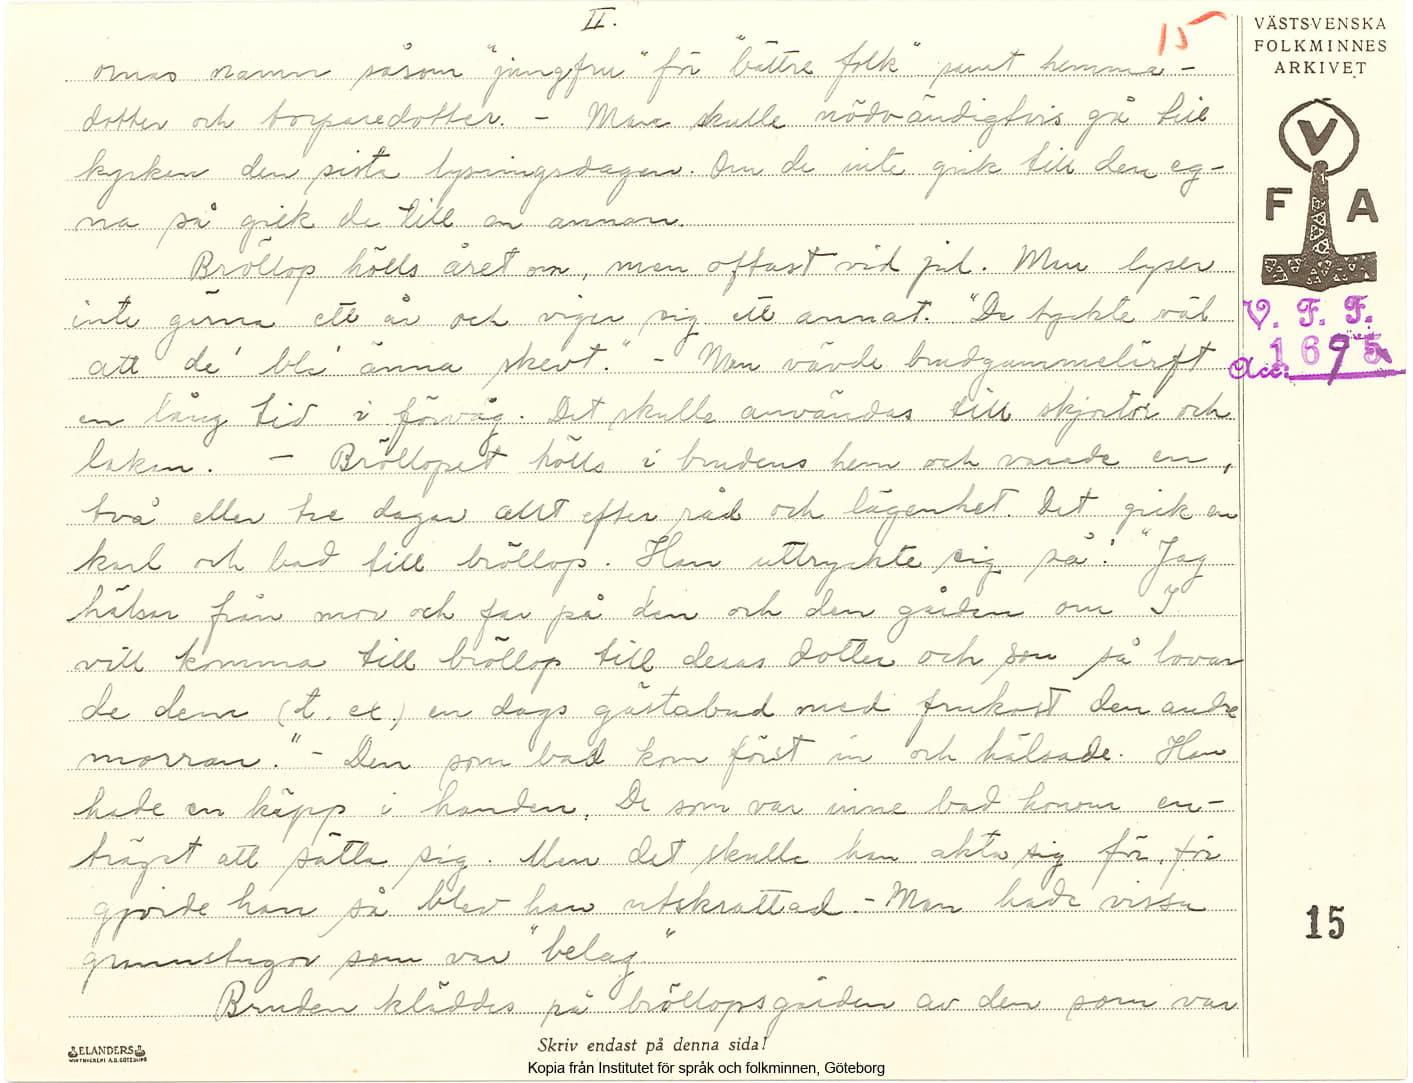 II.
15
VÄSTSVENSKA
FOLKMINNES
ARKIVET
V
F A
V. F. F.
Acc: 1695
ornas namn såsom "jungfru" för "bättre folk" samt hemma-
dotter och torparedotter. - Man skulle nödvändigtvis gå till
kyrkan den sista lysningsdagen. Om de inte gick till den eg-
na så gick de till en annan.
Bröllop hölls året om, men oftast vid jul. Man lyser
inte gärna ett år och viger sig ett annat. "De tyckte väl
att de' bli' änna skevt." - Man vävde brudgummelärft
en lång tid i förväg. Det skulle användas till skjortor och
lakan. - Bröllopet hölls i brudens hem och varade en,
två eller tre dagar allt efter råd och lägenhet. Det gick en
karl och bad till bröllop. Han uttryckte sig så: "Jag
hälsar från mor och far på den och den gården om I
vill komma till bröllop till deras dotter och son så lovar
de dem (t. ex.) en dags gästabud med frukost den andre
morran." - Den som bad kom först in och hälsade. Han
hade en käpp i handen. De som var inne bad honom en-
träget att sätta sig. Men det skulle han akta sig för, för
gjorde han så blev han utskrattad. - Man hade vissa
grannstugor som var "belag"
Bruden kläddes på bröllopsgården av den som var
15
ELANDERS
Skriv endast på denna sida!
Kopia från Institutet för språk och folkminnen, Göteborg